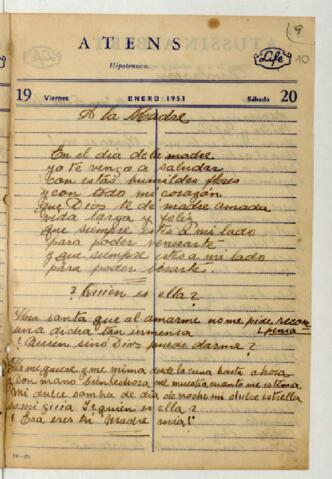 9
10
ATENS
Hipotensor.
Life
19 Viernes ENERO 1951 Sábado 20
A la Madre
En el dia de la madre
yo te vengo a saludar
con estas humildes flores
y con todo mi corazón
que Dios te de madre amada
vida larga y feliz
que siempre estes a mi lado
para poder venerarte
y que siempre estes a mi lado
para poder besarte.
? Quien es ella?
Una santa que al amarme no me pide recom
pensa
una dicha tan inmensa
? Quien sino Dios puede darma?
Ella me quiere y me mima desde la cuna hasta ahora
y con mano bienhechora me muestra cuanto me estima
Mi dulce sombra de dia de noche mi dulce estrella
es mi guia Y quien es ella?
! Esa eres tu Madre mia!